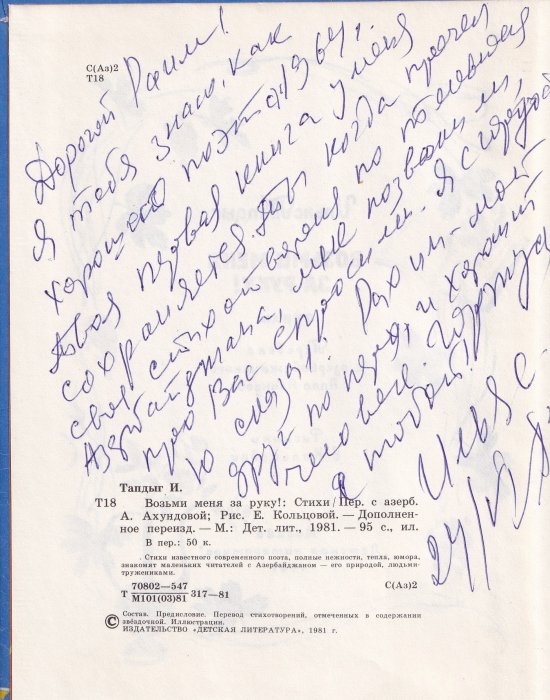 С(Аз)2
Т18
Дорогой Раим!
Я тебя знаю, как
хорошого поэта 1964 г.
Твоя первая книга у меня
сохраняется. Ты когда прочел
свое стихотварения по телевизия
Азербайджана, мне позванили,
про Вас спросили. Я с гордост
ю сказал: Рахим мой
друг по перя, и хароший
человек. Горжусь
с тобой!
24/
Тапдыг И.
Т18 Возьми меня за руку!: Стихи/Пер. с азерб.
А. Ахундовой; Рис. Е. Кольцовой. — Дополнен-
ное переизд. — М.: Дет. лит., 1981. — 95 с., ил.
В пер.: 50 к.
Стихи известного современного поэта, полные нежности, тепла, юмора,
знакомят маленьких читателей с Азербайджаном — его природой, людьми-
тружениками.
Т 70802—547
М101(03)81 317—81 С(Аз)2
Состав. Предисловие. Перевод стихотворений, отмеченных в содержании
© звёздочкой. Иллюстрации.
ИЗДАТЕЛЬСТВО «ДЕТСКАЯ ЛИТЕРАТУРА», 1981 г.